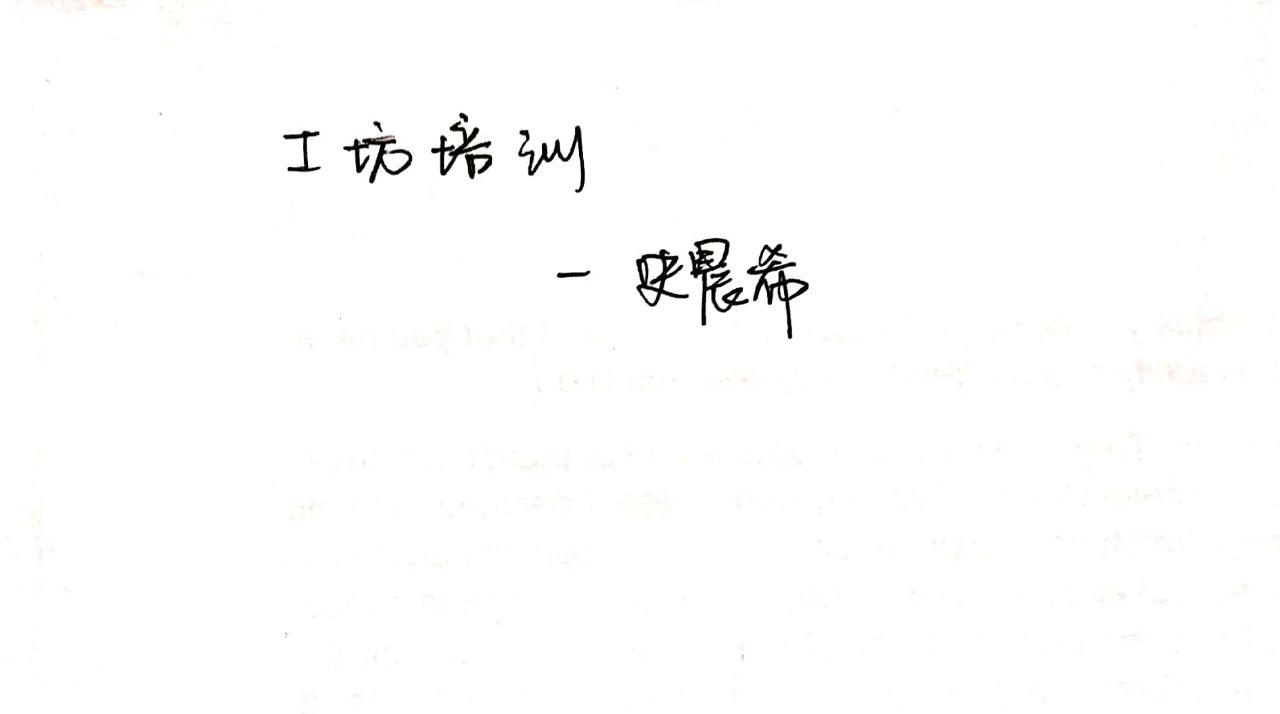 工坊培训
- 史晨希